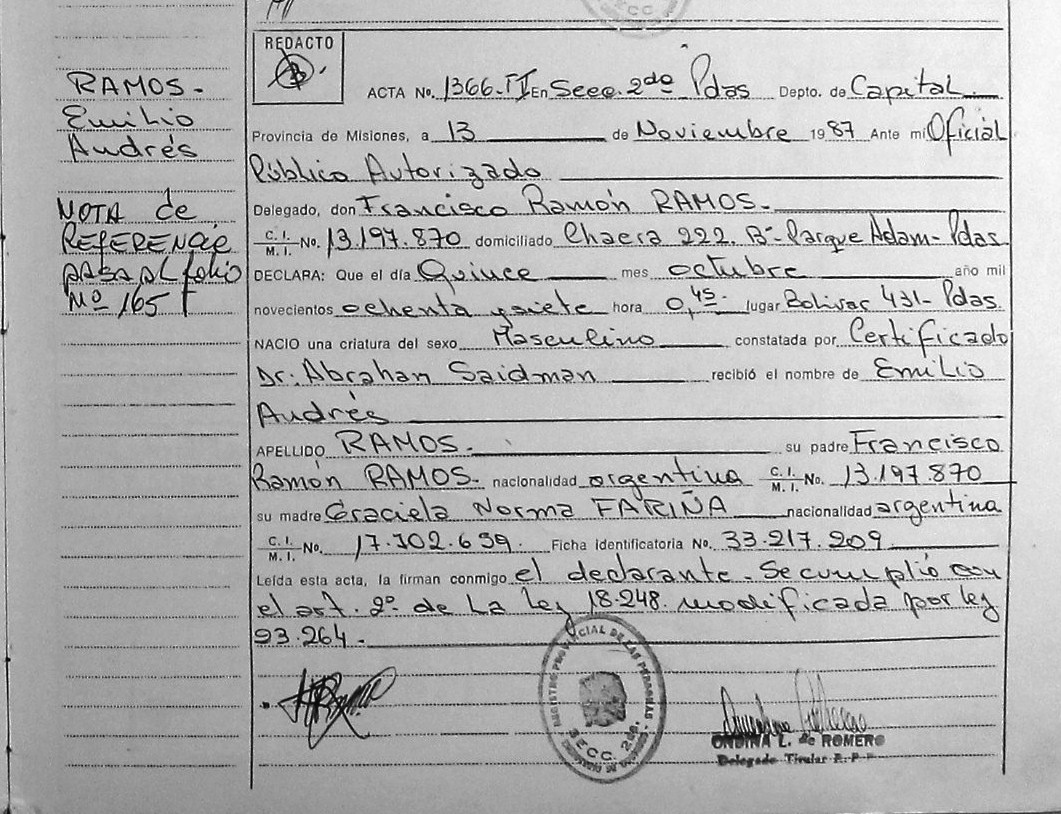 RAMOS-
Emilio
Andrés
NOTA de
REFERENCIA
PASA AL folio
Nº 165 T
REDACTO
ACTA No. 1366-TI En Secc. 2da Pdas Depto. de Capital
Provincia de Misiones, a 13 de Noviembre 1987 Ante mi Oficial
Público Autorizado
Delegado, don Francisco Ramón RAMOS-
C. I. M. I. No. 13.197.870 domiciliado Chacra 222. Bº Parque Adam- Pdas
DECLARA: Que el día Quince mes octubre año mil
novecientos ochenta y siete hora 0,45- lugar Bolivar 431- Pdas.
NACIO una criatura del sexo Masculino constatada por Certificado
Dr: Abrahan Saidman recibió el nombre de Emilio
Andrés
APELLIDO RAMOS- su padre Francisco
Ramón RAMOS- nacionalidad argentina C. I. M. I. No. 13.197.870
su madre Graciela Norma FARIÑA nacionalidad argentina
C. I. M. I. No. 17.302.659. Ficha identificatoria No. 33.217.209.
Leída esta acta, la firman conmigo el declarante. Se cumplió con
el art. 2º. de La Ley 18.248. modificada por ley
93.264-
REGISTRO PROVINCIAL DE LAS PERSONAS
SECC. 2da.
ONDINA L. de ROMERO
Delegado Titular R.P.P